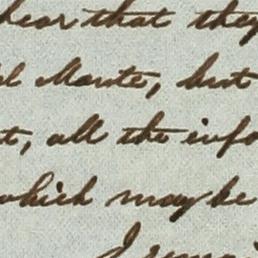 hear that they
Monte, but
t, all the info
which may be
I remai